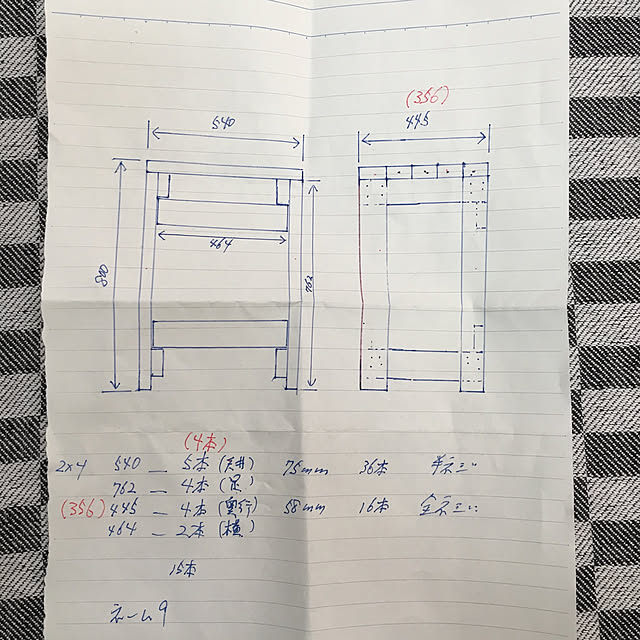 (356)
540
445
464
800
762
(4本)
2×4 540 — 5本 (天井) 75mm 36本 半ネジ
762 — 4本 (足)
(356) 445 — 4本 (奥行) 58mm 16本 全ネジ
464 — 2本 (横)
15本